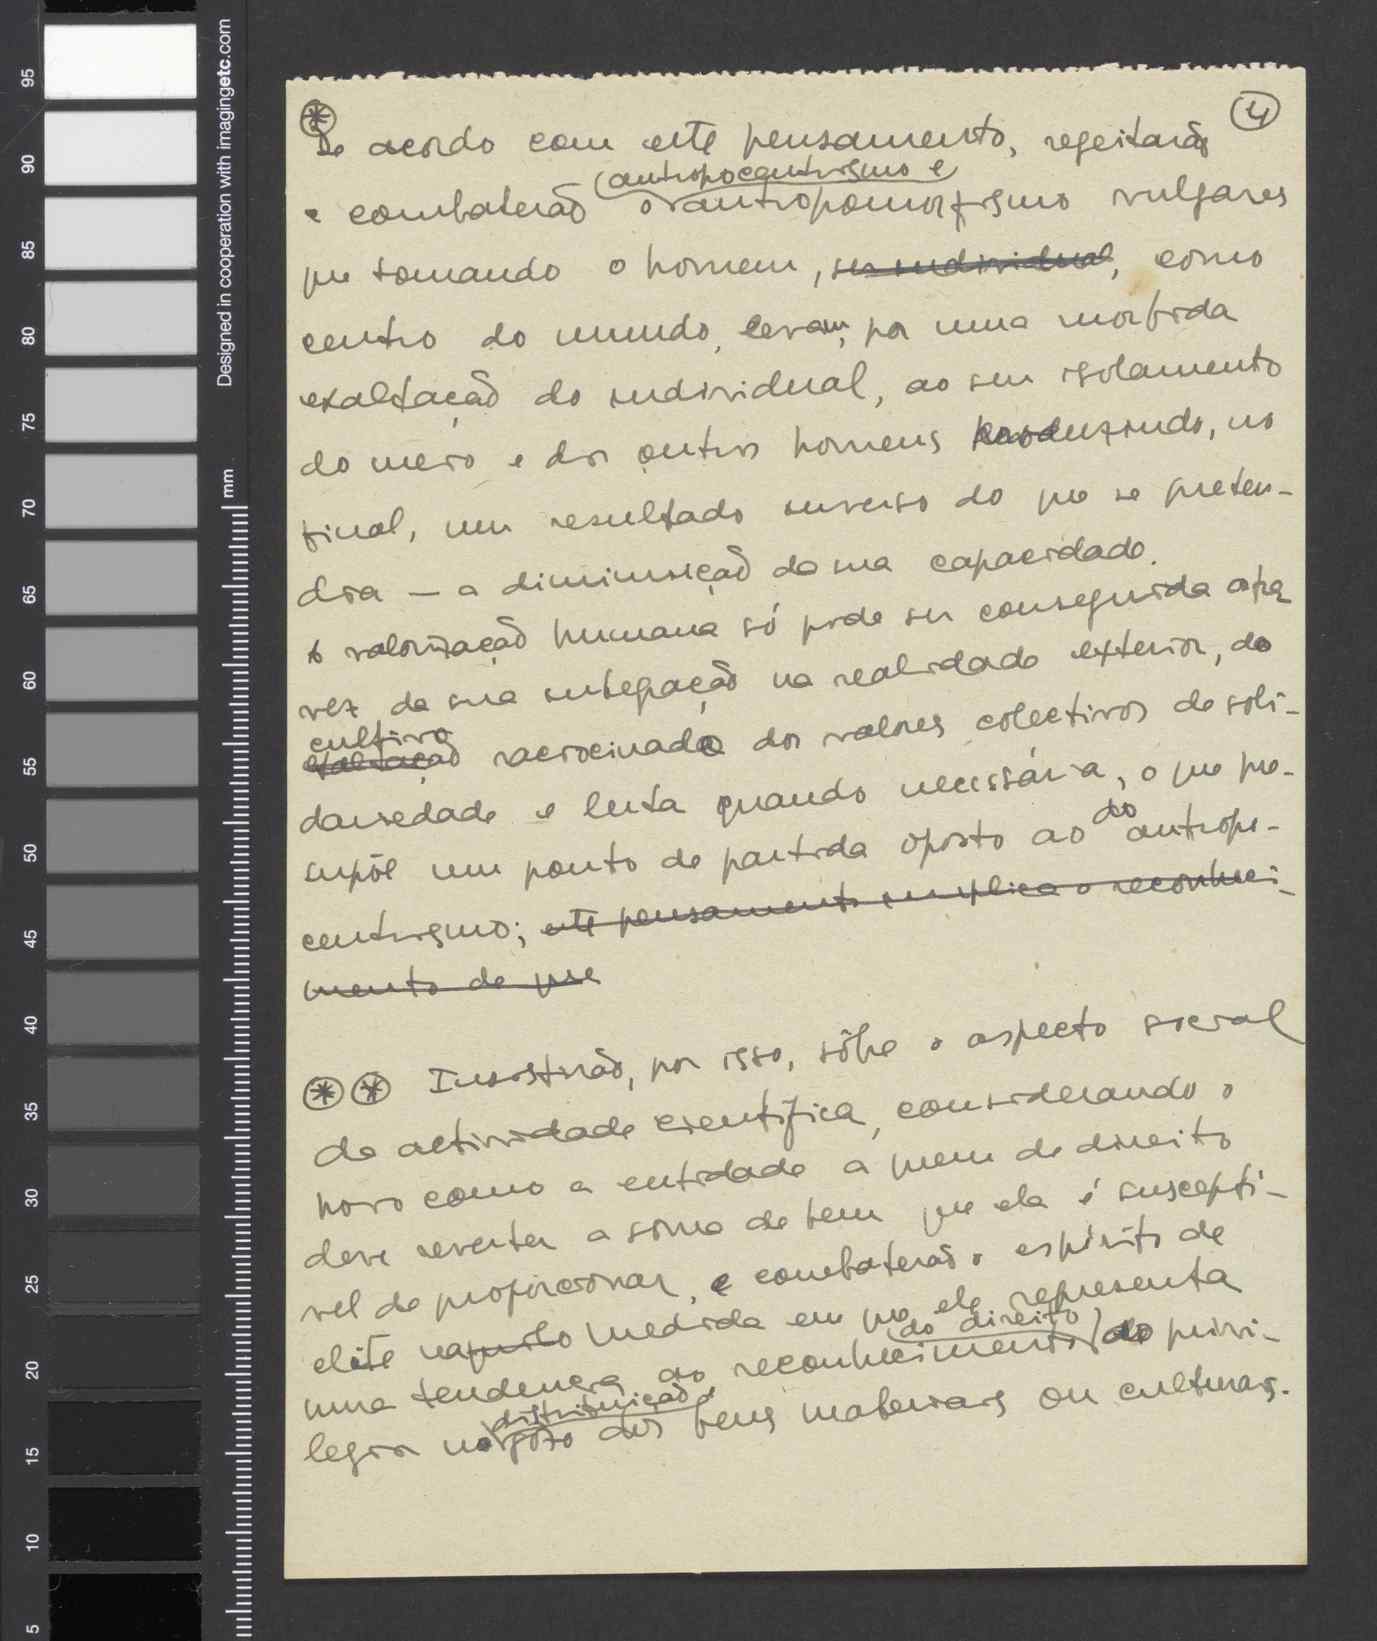 ④
⊛
De acordo com este pensamento, regeitarão
(antropocentrismo e
e combaterão o antropomorfismo vulgares
que tomando o homem, ser individual, como
centro do mundo, levam, por uma morbida
exaltação do individual, ao seu isolamento
do meio e dos outros homens produzindo, no
final, um resultado inverso do que se preten-
dia — a diminuição da sua capacidade.
A valorização humana só pode ser conseguida atra
vez da sua integração na realidade exterior, do
cultivo
exaltação raciocinado dos valores colectivos de soli-
dariedade e luta quando necessária, o que pre-
supõe um ponto de partida oposto ao do antropo-
centrismo; este pensamento implica o reconheci-
mento de que
⊛⊛ Insistirão, por isso, sôbre o aspecto social
da actividade cientifica, considerando o
povo como a entidade a quem de direito
deve reverter a soma de bem que ela é suscepti-
vel de proporcionar, e combaterão o espirito de
elite naquilo medida em que ele representa
uma tendencia ao reconhecimento do privi-
do direito
legios no gôso dos bens materiais ou culturais.
distribuição
Designed in cooperation with imagingetc.com
mm
95
90
85
80
75
70
65
60
55
50
45
40
35
30
25
20
15
10
5